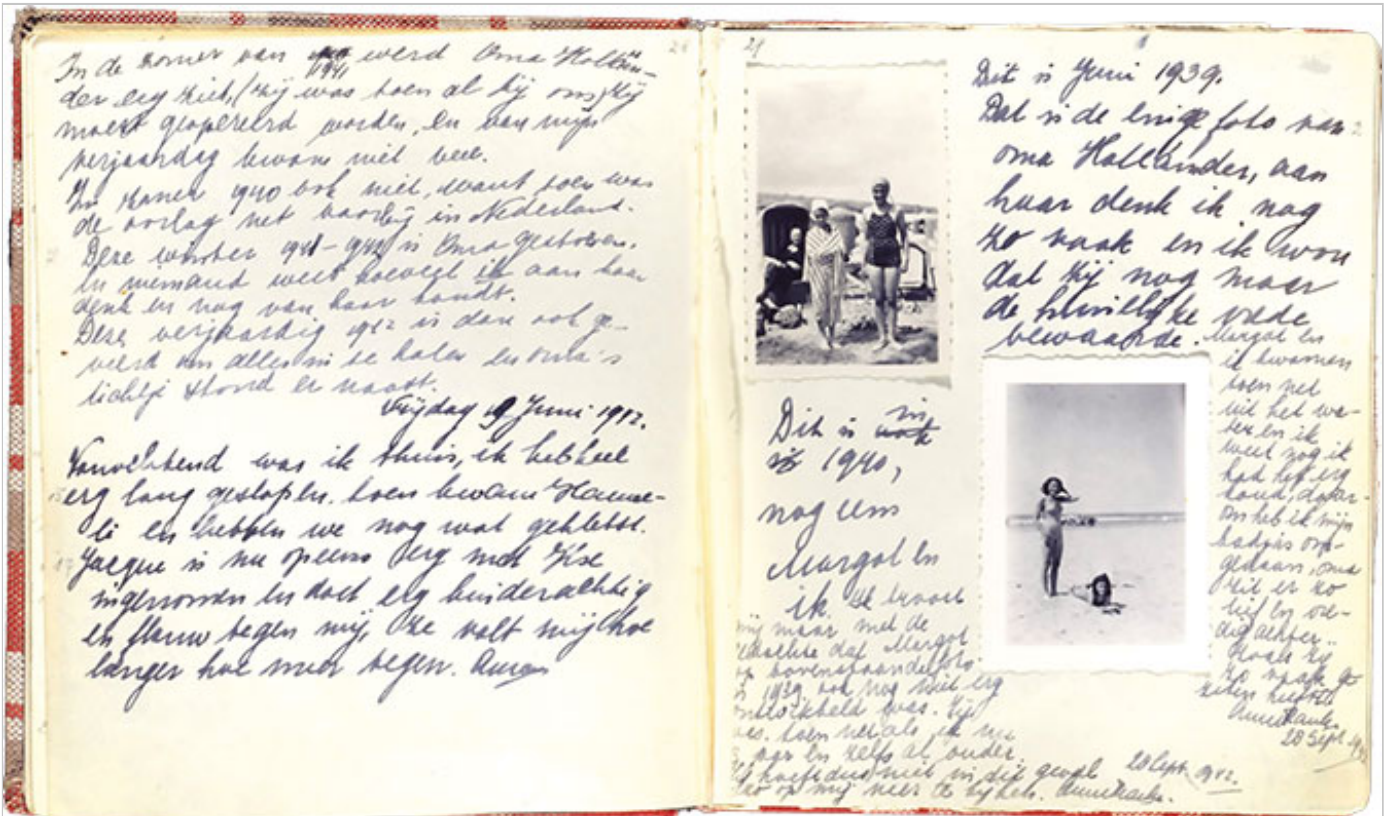 In de zomer van 1941 werd Oma Hollän-
der erg ziek, (zij was toen al bij ons) zij
moest geopereerd worden, en van mijn
verjaardag kwam niet veel.
In zomer 1940 ook niet, want toen was
de oorlog net voorbij in Nederland.
Deze winter 1941-1942 is Oma gestorven.
En niemand weet hoeveel ik aan haar
denk en nog van haar houdt.
Deze verjaardig 1942 is dan ook ge-
veerd om alles in te halen en oma's
lichtje stond er naast.
Vrijdag 19 Juni 1942.
Vanochtend was ik thuis, ik heb heel
erg lang geslapen, toen kwam Hanne-
li en hebben we nog wat gekletst.
Jacque is nu opeens erg met Ilse
ingenomen en doet erg kinderachtig
en flauw tegen mij, ze valt mij hoe
langer hoe meer tegen. Anne
21
Dit is Juni 1939.
Dat is de enige foto van
oma Holländer, aan
haar denk ik nog
zo vaak en ik wou
dat zij nog maar
de huiselijke vrede
bewaarde.
Margot en
ik kwamen
toen net
uit het wa-
ter en ik
weet nog ik
had het erg
koud, daar-
om heb ik mijn
badjas om-
gedaan, oma
zit er zo
lief en vre-
dig achter..
Zoals zij
zo vaak ge-
zeten heeft.
Anne Frank.
28 Sept. 1942
Dit is in
1940,
nog eens
Margot en
ik. Ik troost
mij maar met de
gedachte dat Margot
op bovenstaande foto
in 1939 ook nog niet erg
ontwikkeld was. Zij
was toen net als ik nu
jaar en zelfs al ouder.
Ze hoeft dus niet in dit geval
zo op mij neer te kijken. Anne Frank.
28 Sept. 1942.